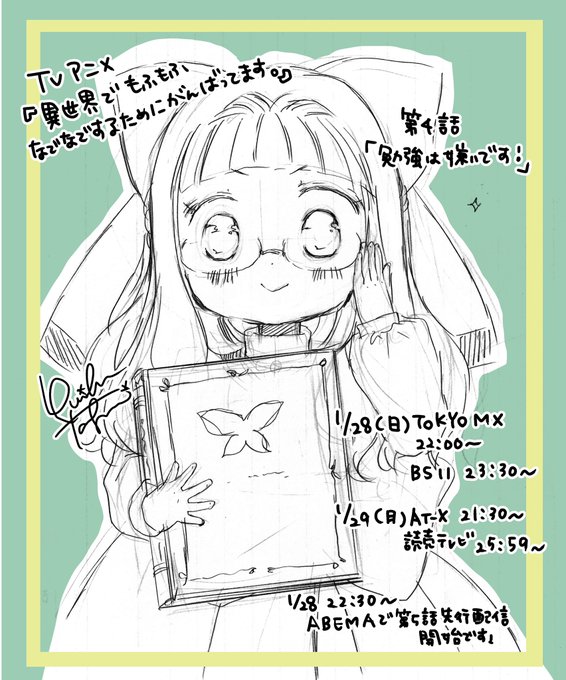 TVアニメ
『異世界でもふもふ
なでなでするためにがんばってます。』
第4話
「勉強は嫌いです!」
1/28(日)TOKYO MX
22:00~
BS11 23:30~
1/29(月)AT-X 21:30~
読売テレビ 25:59~
1/28 22:30~
ABEMAで第5話先行配信
開始です』